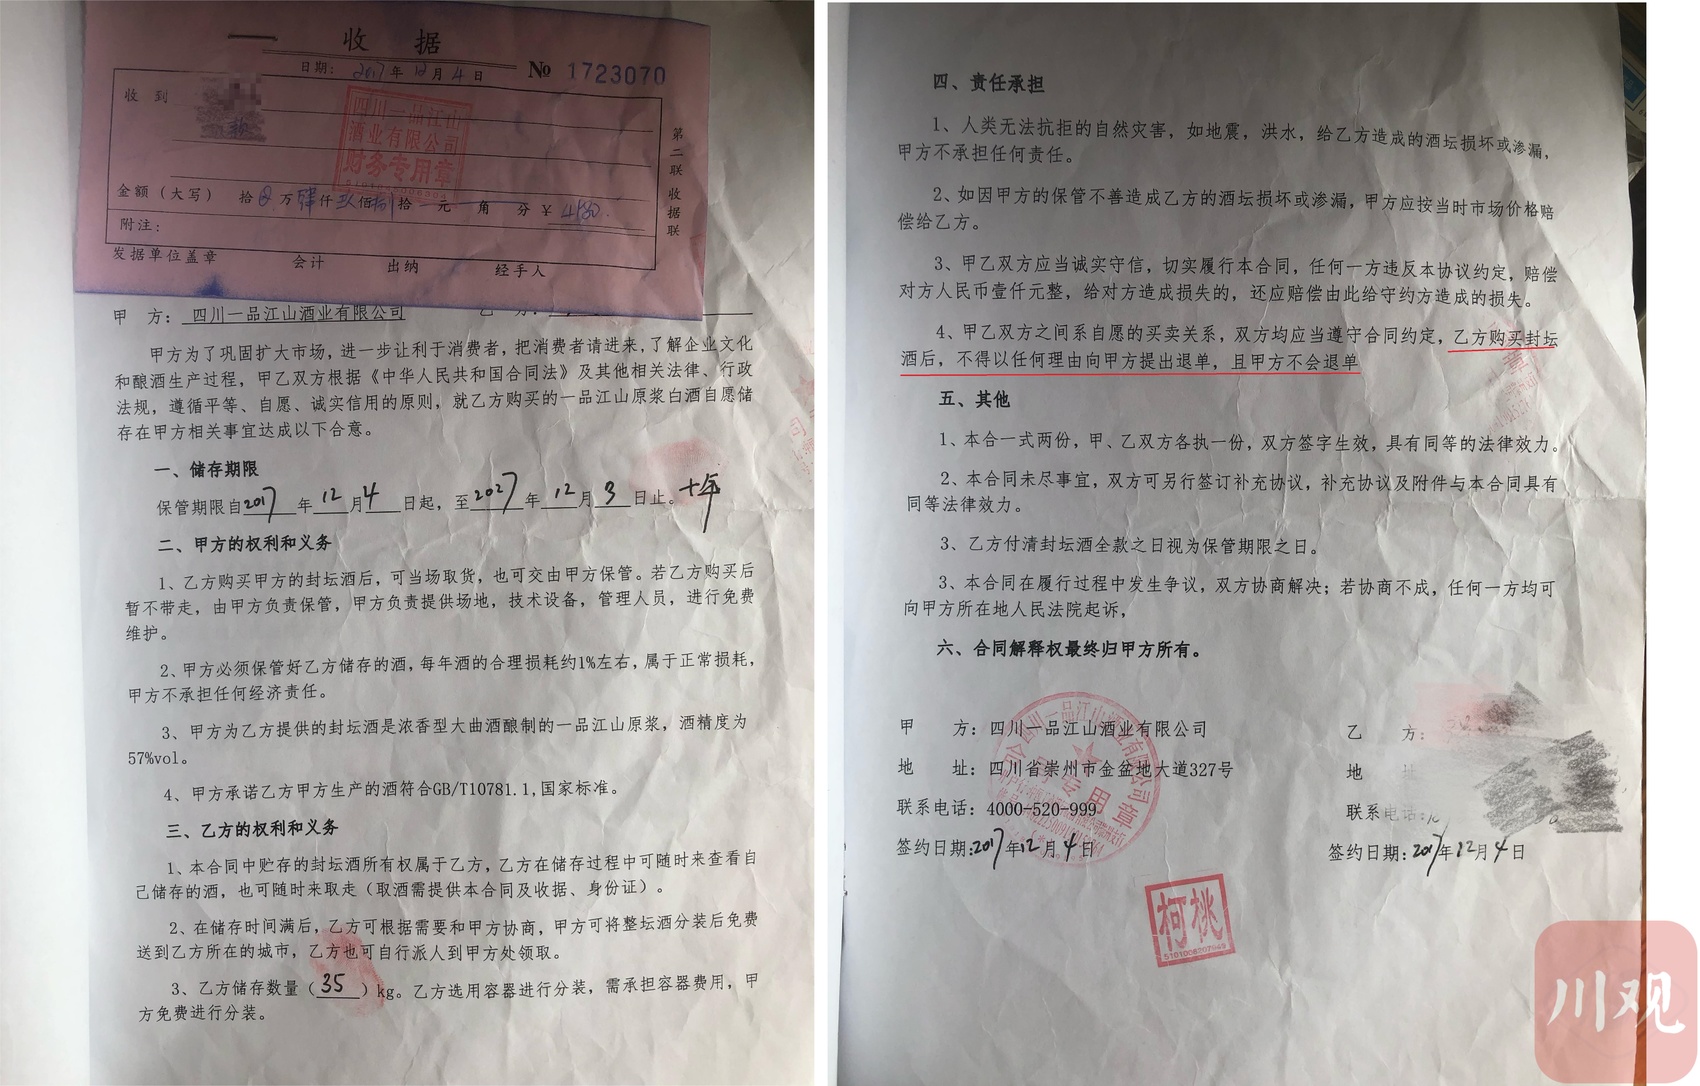 收 据
日期: 2017年12月4日 № 1723070
收 到
四川一品江山
酒业有限公司
财务专用章
第二联 收据联
金额（大写） 拾 万肆仟 佰 拾 元 角 分 ¥
附注:
发据单位盖章 会计 出纳 经手人
甲 方: 四川一品江山酒业有限公司
甲方为了巩固扩大市场,进一步让利于消费者,把消费者请进来,了解企业文化
和酿酒生产过程,甲乙双方根据《中华人民共和国合同法》及其他相关法律、行政
法规,遵循平等、自愿、诚实信用的原则,就乙方购买的一品江山原浆白酒自愿储
存在甲方相关事宜达成以下合意。
一、储存期限
保管期限自2017年12月4日起,至2027年12月3日止。十年
二、甲方的权利和义务
1、乙方购买甲方的封坛酒后,可当场取货,也可交由甲方保管。若乙方购买后
暂不带走,由甲方负责保管,甲方负责提供场地,技术设备,管理人员,进行免费
维护。
2、甲方必须保管好乙方储存的酒,每年酒的合理损耗约1%左右,属于正常损耗,
甲方不承担任何经济责任。
3、甲方为乙方提供的封坛酒是浓香型大曲酒酿制的一品江山原浆,酒精度为
57%vol。
4、甲方承诺乙方甲方生产的酒符合GB/T10781.1,国家标准。
三、乙方的权利和义务
1、本合同中贮存的封坛酒所有权属于乙方,乙方在储存过程中可随时来查看自
己储存的酒,也可随时来取走（取酒需提供本合同及收据、身份证）。
2、在储存时间满后,乙方可根据需要和甲方协商,甲方可将整坛酒分装后免费
送到乙方所在的城市,乙方也可自行派人到甲方处领取。
3、乙方储存数量（35）kg。乙方选用容器进行分装,需承担容器费用,甲
方免费进行分装。
四、责任承担
1、人类无法抗拒的自然灾害,如地震,洪水,给乙方造成的酒坛损坏或渗漏,
甲方不承担任何责任。
2、如因甲方的保管不善造成乙方的酒坛损坏或渗漏,甲方应按当时市场价格赔
偿给乙方。
3、甲乙双方应当诚实守信,切实履行本合同,任何一方违反本协议约定,赔偿
对方人民币壹仟元整,给对方造成损失的,还应赔偿由此给守约方造成的损失。
4、甲乙双方之间系自愿的买卖关系,双方均应当遵守合同约定,乙方购买封坛
酒后,不得以任何理由向甲方提出退单,且甲方不会退单
五、其他
1、本合一式两份,甲、乙双方各执一份,双方签字生效,具有同等的法律效力。
2、本合同未尽事宜,双方可另行签订补充协议,补充协议及附件与本合同具有
同等法律效力。
3、乙方付清封坛酒全款之日视为保管期限之日。
3、本合同在履行过程中发生争议,双方协商解决;若协商不成,任何一方均可
向甲方所在地人民法院起诉,
六、合同解释权最终归甲方所有。
甲 方: 四川一品江山酒业有限公司
地 址: 四川省崇州市金盆地大道327号
联系电话: 4000-520-999
签约日期:2017年12月4日
乙 方:
地 址
联系电话:
签约日期:2017年12月4日
柯桃
5101008207949
川观